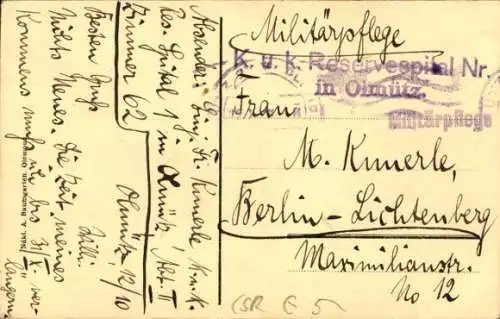 Militärpflege
K. u. k. Reservespital Nr.
in Olmütz.
Militärpflege
Frau
M. Kunerle,
Berlin-Lichtenberg
Maximilianstr.
No 12
Absender: Einj. Fr. Kunerle K.u.K.
Res. Spital 1 in Olmütz Abt. II
Zimmer 62
Olmütz, 12/10
Besten Gruß
Willi.
Nichts Neues. Die Zeit meines
Kommens muß ich bis 31/X. ver-
längern
ČSR